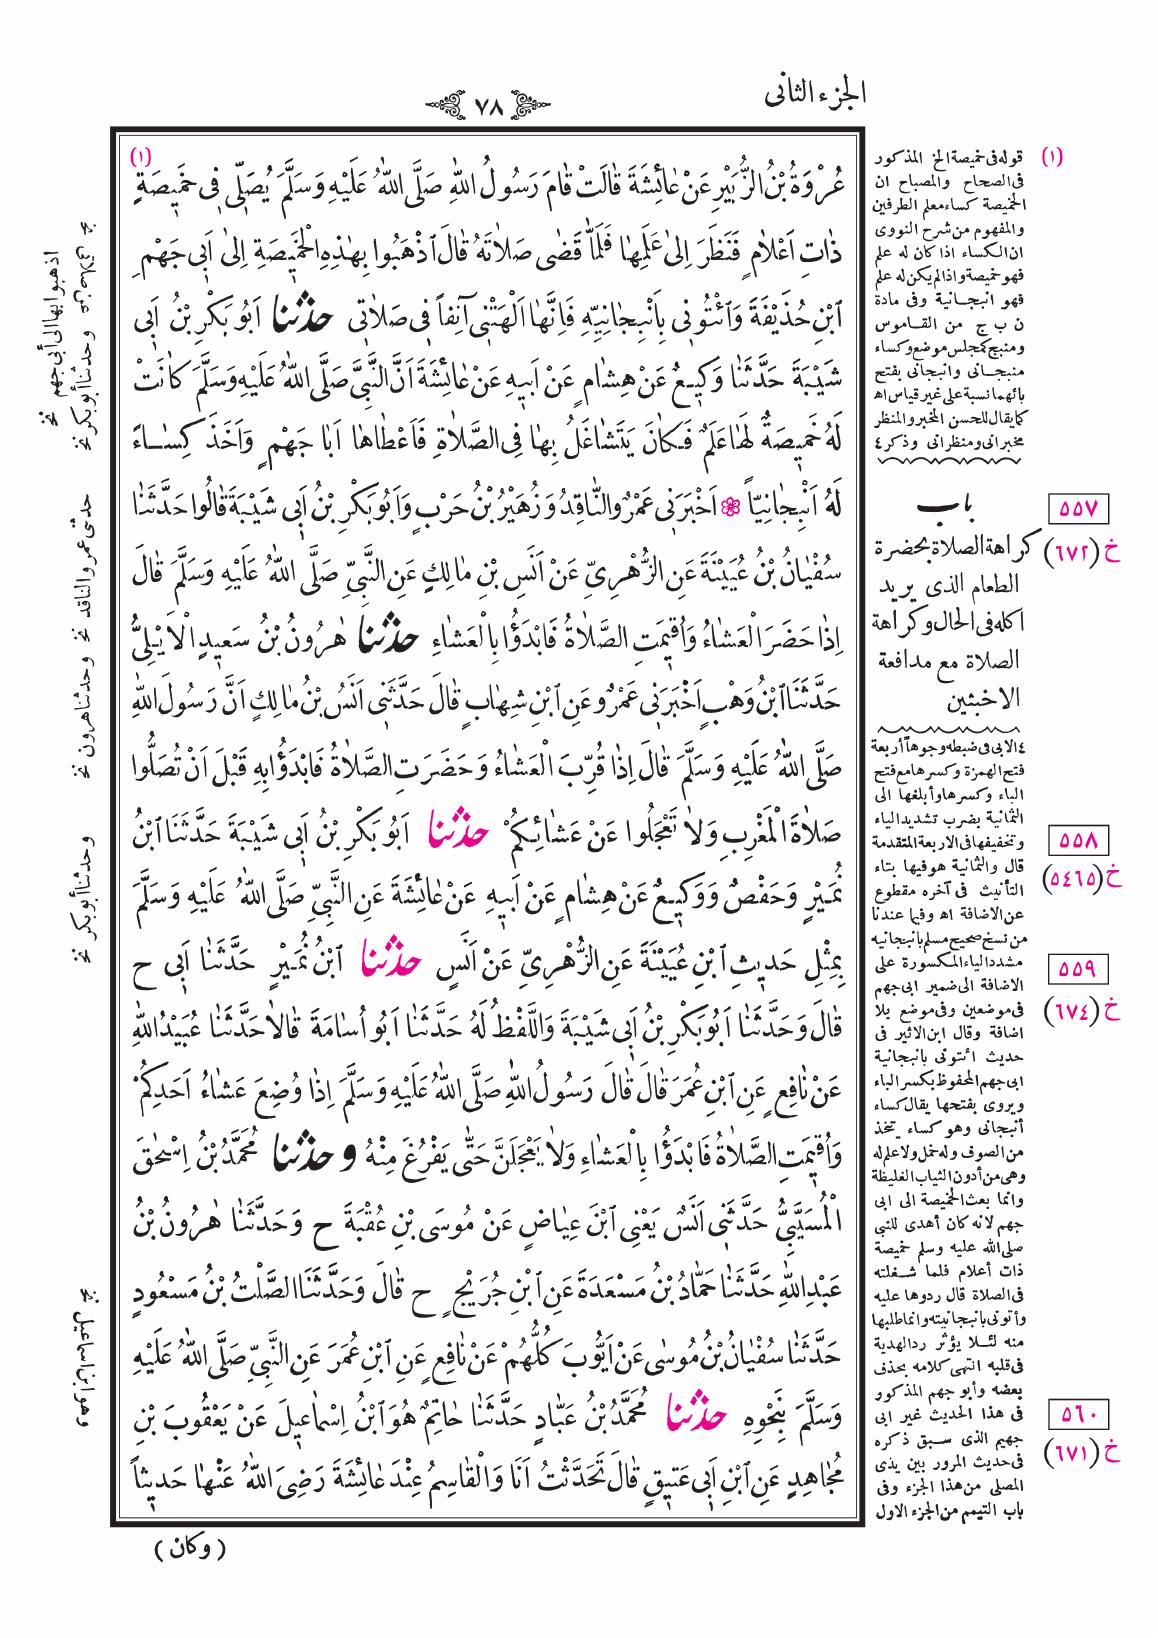 الجزء الثانى
٧٨
(١)
عُرْوَةُ بْنُ الزُّبَيْرِ عَنْ عَائِشَةَ قَالَتْ قَامَ رَسُولُ اللّٰهِ صَلَّى اللّٰهُ عَلَيْهِ وَسَلَّمَ يُصَلِّى فِى خَمِيصَةٍ
ذَاتِ اَعْلَامٍ فَنَظَرَ اِلىٰ عَلَمِهَا فَلَمَّا قَضٰى صَلَاتَهُ قَالَ ٱذْهَبُوا بِهٰذِهِ الْخَمِيصَةِ اِلىٰ اَبِى جَهْمِ
ٱبْنِ حُذَيْفَةَ وَٱئْتُونِى بِاَنْبِجَانِيِّهِ فَاِنَّهَا اَلْهَتْنِى آنِفاً فِى صَلَاتِى حدثنا اَبُو بَكْرِ بْنُ اَبِى
شَيْبَةَ حَدَّثَنَا وَكِيعٌ عَنْ هِشَامٍ عَنْ اَبِيهِ عَنْ عَائِشَةَ اَنَّ النَّبِىَّ صَلَّى اللّٰهُ عَلَيْهِ وَسَلَّمَ كَانَتْ
لَهُ خَمِيصَةٌ لَهَا عَلَمٌ فَكَانَ يَتَشَاغَلُ بِهَا فِى الصَّلَاةِ فَاَعْطَاهَا اَبَا جَهْمٍ وَاَخَذَ كِسَاءً
لَهُ اَنْبِجَانِيّاً ۞ اَخْبَرَنِى عَمْرٌو النَّاقِدُ وَزُهَيْرُ بْنُ حَرْبٍ وَاَبُو بَكْرِ بْنُ اَبِى شَيْبَةَ قَالُوا حَدَّثَنَا
سُفْيَانُ بْنُ عُيَيْنَةَ عَنِ الزُّهْرِىِّ عَنْ اَنَسِ بْنِ مَالِكٍ عَنِ النَّبِىِّ صَلَّى اللّٰهُ عَلَيْهِ وَسَلَّمَ قَالَ
اِذَا حَضَرَ الْعَشَاءُ وَاُقِيمَتِ الصَّلَاةُ فَابْدَؤُا بِالْعَشَاءِ حدثنا هٰرُونُ بْنُ سَعِيدٍ الْاَيْلِىُّ
حَدَّثَنَا ٱبْنُ وَهْبٍ اَخْبَرَنِى عَمْرٌو عَنِ ٱبْنِ شِهَابٍ قَالَ حَدَّثَنِى اَنَسُ بْنُ مَالِكٍ اَنَّ رَسُولَ اللّٰهِ
صَلَّى اللّٰهُ عَلَيْهِ وَسَلَّمَ قَالَ اِذَا قُرِّبَ الْعَشَاءُ وَحَضَرَتِ الصَّلَاةُ فَابْدَؤُا بِهِ قَبْلَ اَنْ تُصَلُّوا
صَلَاةَ الْمَغْرِبِ وَلَا تَعْجَلُوا عَنْ عَشَائِكُمْ حدثنا اَبُو بَكْرِ بْنُ اَبِى شَيْبَةَ حَدَّثَنَا ٱبْنُ
نُمَيْرٍ وَحَفْصٌ وَوَكِيعٌ عَنْ هِشَامٍ عَنْ اَبِيهِ عَنْ عَائِشَةَ عَنِ النَّبِىِّ صَلَّى اللّٰهُ عَلَيْهِ وَسَلَّمَ
بِمِثْلِ حَدِيثِ ٱبْنِ عُيَيْنَةَ عَنِ الزُّهْرِىِّ عَنْ اَنَسٍ حدثنا ٱبْنُ نُمَيْرٍ حَدَّثَنَا اَبِى ح
قَالَ وَحَدَّثَنَا اَبُو بَكْرِ بْنُ اَبِى شَيْبَةَ وَاللَّفْظُ لَهُ حَدَّثَنَا اَبُو اُسَامَةَ قَالَا حَدَّثَنَا عُبَيْدُ اللّٰهِ
عَنْ نَافِعٍ عَنِ ٱبْنِ عُمَرَ قَالَ قَالَ رَسُولُ اللّٰهِ صَلَّى اللّٰهُ عَلَيْهِ وَسَلَّمَ اِذَا وُضِعَ عَشَاءُ اَحَدِكُمْ
وَاُقِيمَتِ الصَّلَاةُ فَابْدَؤُا بِالْعَشَاءِ وَلَا يَعْجَلَنَّ حَتّٰى يَفْرُغَ مِنْهُ وحدثنا مُحَمَّدُ بْنُ اِسْحٰقَ
الْمُسَيَّبِىُّ حَدَّثَنِى اَنَسٌ يَعْنِى ٱبْنَ عِيَاضٍ عَنْ مُوسَى بْنِ عُقْبَةَ ح وَحَدَّثَنَا هٰرُونُ بْنُ
عَبْدِ اللّٰهِ حَدَّثَنَا حَمَّادُ بْنُ مَسْعَدَةَ عَنِ ٱبْنِ جُرَيْجٍ ح قَالَ وَحَدَّثَنَا الصَّلْتُ بْنُ مَسْعُودٍ
حَدَّثَنَا سُفْيَانُ بْنُ مُوسٰى عَنْ اَيُّوبَ كُلُّهُمْ عَنْ نَافِعٍ عَنِ ٱبْنِ عُمَرَ عَنِ النَّبِىِّ صَلَّى اللّٰهُ عَلَيْهِ
وَسَلَّمَ بِنَحْوِهِ حدثنا مُحَمَّدُ بْنُ عَبَّادٍ حَدَّثَنَا حَاتِمٌ هُوَ ٱبْنُ اِسْمَاعِيلَ عَنْ يَعْقُوبَ بْنِ
مُجَاهِدٍ عَنِ ٱبْنِ اَبِى عَتِيقٍ قَالَ تَحَدَّثْتُ اَنَا وَالْقَاسِمُ عِنْدَ عَائِشَةَ رَضِىَ اللّٰهُ عَنْهَا حَدِيثاً
( وكان )
(١) قوله فى خميصة الخ المذكور
فى الصحاح والمصباح ان
الخميصة كساء معلم الطرفين
والمفهوم من شرح النووى
ان الكساء اذا كان له علم
فهو خميصة واذا لم يكن له علم
فهو انبجانية وفى مادة
ن ب ج من القاموس
ومنبج كمجلس موضع وكساء
منبجانى وانبجانى بفتح
بائهما نسبة على غير قياس اه
كما يقال للحسن المخبر والمنظر
مخبرانى ومنظرانى وذكر ٤
باب
كراهة الصلاة بحضرة
الطعام الذى يريد
اكله فى الحال وكراهة
الصلاة مع مدافعة
الاخبثين
٤ الابى فى ضبطه وجوهاً أربعة
فتح الهمزة وكسرها مع فتح
الباء وكسرها وأبلغها الى
الثمانية بضرب تشديد الياء
وتخفيفها فى الاربعة المتقدمة
قال والثمانية هو فيها بتاء
التأنيث فى آخره مقطوع
عن الاضافة اه وفيما عندنا
من نسخ صحيح مسلم بانبجانيه
مشدد الياء المكسورة على
الاضافة الى ضمير ابى جهم
فى موضعين وفى موضع بلا
اضافة وقال ابن الاثير فى
حديث ائتونى بانبجانية
ابى جهم المحفوظ بكسر الباء
ويروى بفتحها يقال كساء
أنبجانى وهو كساء يتخذ
من الصوف وله خمل ولا علم له
وهى من أدون الثياب الغليظة
وانما بعث الخميصة الى ابى
جهم لانه كان أهدى للنبى
صلى الله عليه وسلم خميصة
ذات أعلام فلما شغلته
فى الصلاة قال ردوها عليه
وأتونى بانبجانيته وانما طلبها
منه لئلا يؤثر رد الهدية
فى قلبه انتهى كلامه بحذف
بعضه وأبو جهم المذكور
فى هذا الحديث غير ابى
جهيم الذى سبق ذكره
فى حديث المرور بين يدى
المصلى من هذا الجزء وفى
باب التيمم من الجزء الاول
٥٥٧
خ (٦٧٢)
٥٥٨
خ (٥٤٦٥)
٥٥٩
خ (٦٧٤)
٥٦٠
خ (٦٧١)
اذهبوا بها الى أبى جهم نخ
فى صلاتى نخ وحدثنا أبو بكر نخ
حدثنى عمرو الناقد نخ وحدثنا هرون نخ
وحدثنا أبو بكر نخ
وهو ابن اسماعيل نخ